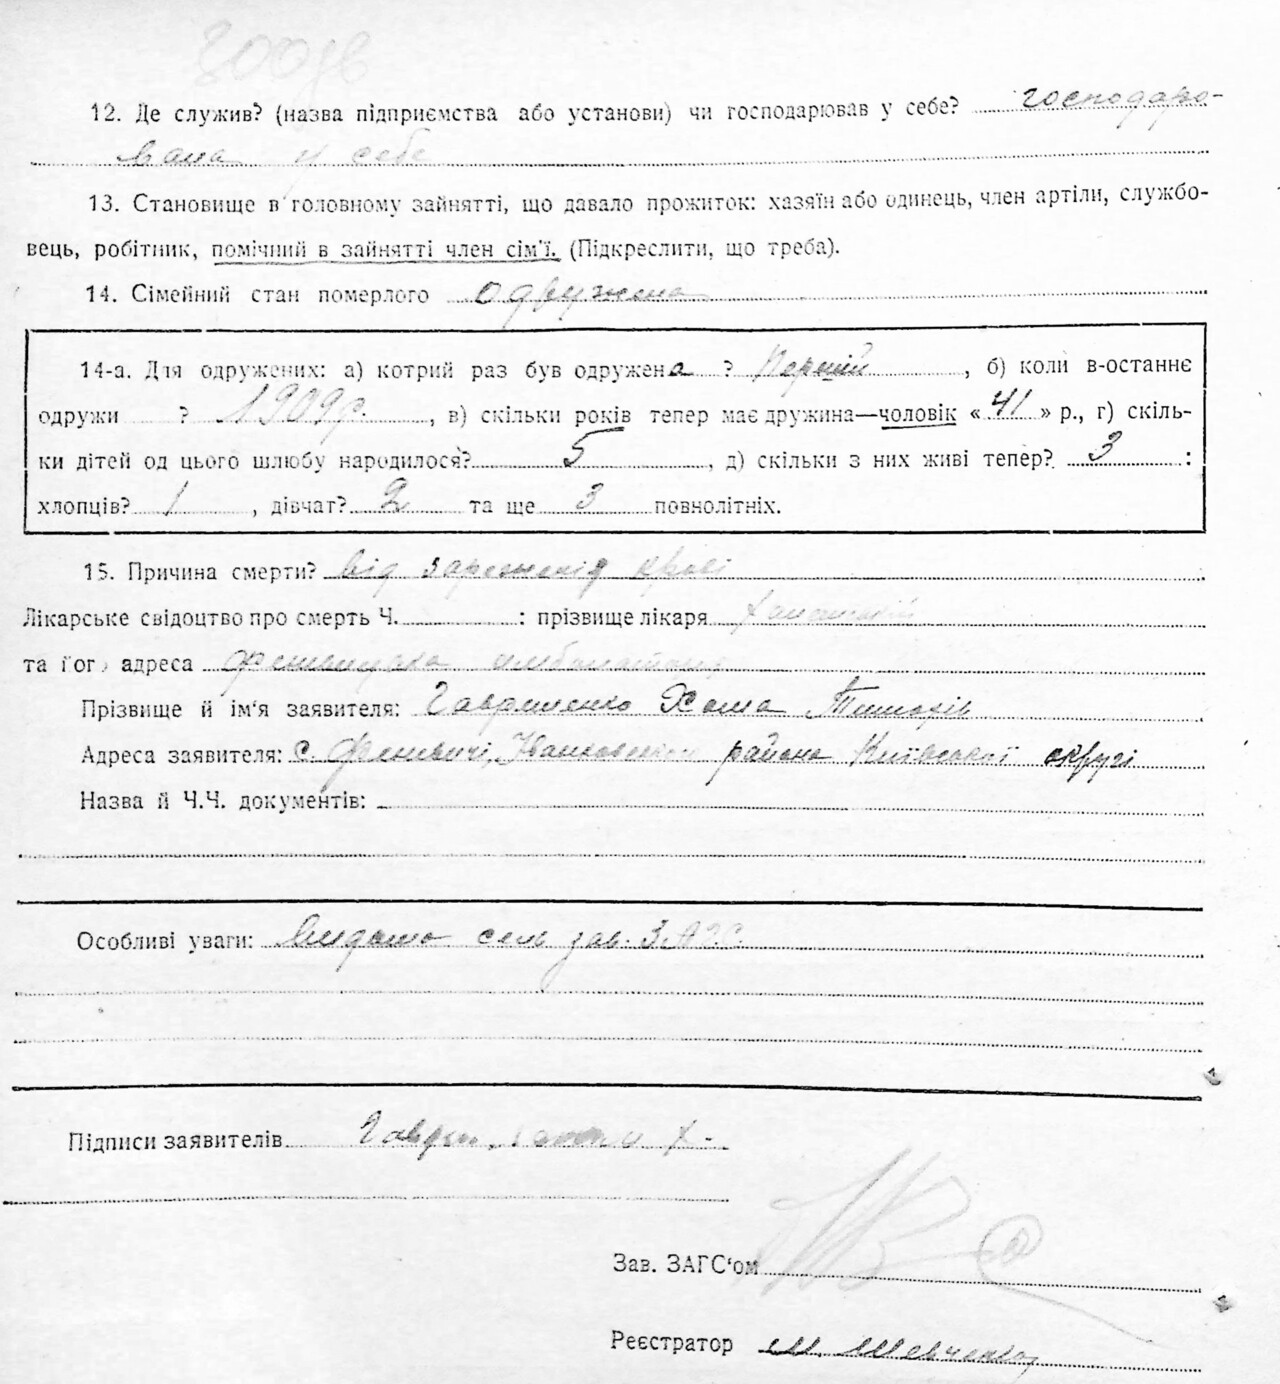 12. Де служив? (назва підприємства або установи) чи господарював у себе? господарю-
вала у себе
13. Становище в головному зайнятті, що давало прожиток: хазяїн або одинець, член артіли, службо-
вець, робітник, помічний в зайнятті член сім'ї. (Підкреслити, що треба).
14. Сімейний стан померлого одружена
14-а. Для одружених: а) котрий раз був одружена ? Перший , б) коли в-останнє
одружи ? 1909 р. , в) скільки років тепер має дружина—чоловік « 41 » р., г) скіль-
ки дітей од цього шлюбу народилося? 5 , д) скільки з них живі тепер? 3 :
хлопців? 1 , дівчат? 2 та ще 3 повнолітніх.
15. Причина смерти? від зараження крові
Лікарське свідоцтво про смерть Ч. : прізвище лікаря
та їог адреса амбулаторія
Прізвище й ім'я заявителя: Гавриленко Хома
Адреса заявителя: с. Феневичі, Іванковського района Київської округі
Назва й Ч.Ч. документів:
Особливі уваги: Видано зав. ЗАГС
Підписи заявителів Х.
Зав. ЗАГС'ом
Реєстратор М. Шевченко